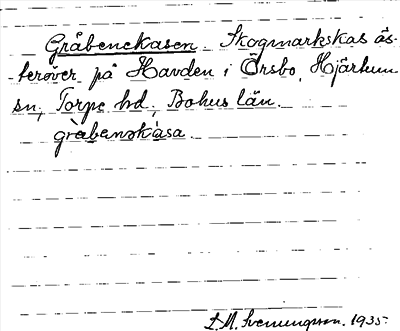 Gråbenekasen. Skogmarkskas ös-
-teröver på Havden i Örsbo, Hjärtum
sn, Torpe hd, Bohus län.
gràbenskása.
S. M. Svenungson. 1935.